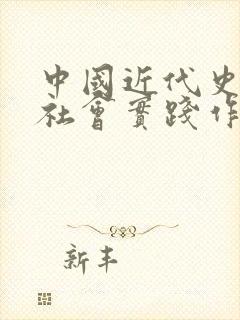 中國近代史
社會實踐作
新丰